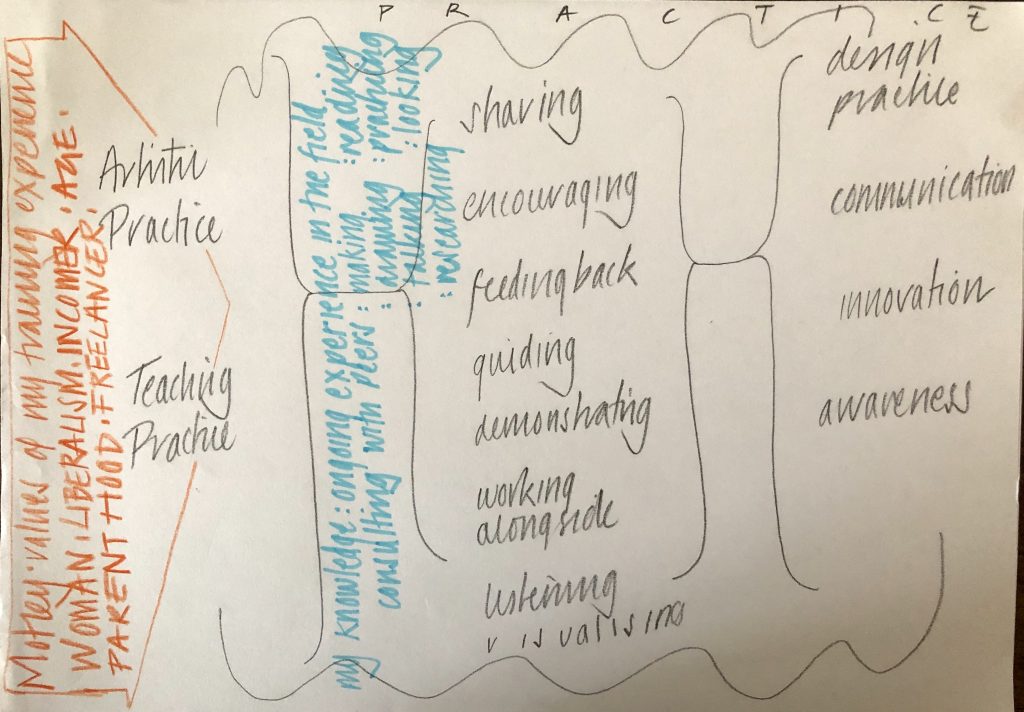 PRACTICE
Motley values of my training experience
WOMAN. LIBERALISM. INCOMER. AGE.
PARENTHOOD. FREELANCER.
Artistic
Practice
Teaching
Practice
my knowledge: ongoing experience in the field
consulting with peers: making :reading
: drawing :practicing
: talking :looking
: researching
sharing
encouraging
feeding back
guiding
demonstrating
working
alongside
listening
visualising
design
practice
communication
innovation
awareness